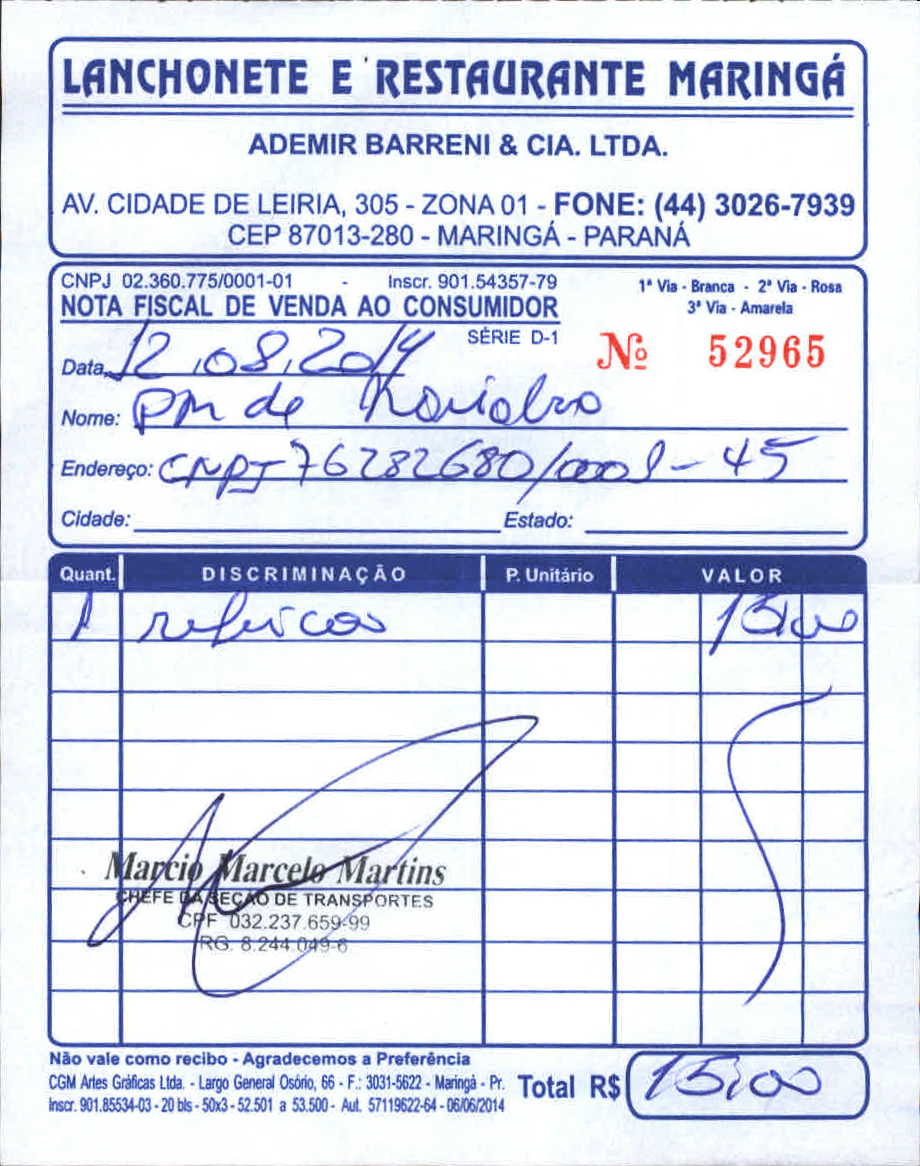 LANCHONETE E RESTAURANTE MARINGÁ
ADEMIR BARRENI & CIA. LTDA.
AV. CIDADE DE LEIRIA, 305 - ZONA 01 - FONE: (44) 3026-7939
CEP 87013-280 - MARINGÁ - PARANÁ
CNPJ 02.360.775/0001-01 - Inscr. 901.54357-79
1ª Via - Branca - 2ª Via - Rosa
3ª Via - Amarela
NOTA FISCAL DE VENDA AO CONSUMIDOR
SÉRIE D-1
Nº 52965
Data 12.08.2014
Nome: PM de
Endereço: CNPJ 76282680/0001-45
Cidade: Estado:
Quant. DISCRIMINAÇÃO P. Unitário VALOR
1 15,00
Marcio Marcelo Martins
CHEFE DA SEÇÃO DE TRANSPORTES
CPF 032.237.659-99
RG. 8.244.049-6
Não vale como recibo - Agradecemos a Preferência
CGM Artes Gráficas Ltda. - Largo General Osório, 66 - F.: 3031-5622 - Maringá - Pr.
Inscr. 901.85534-03 - 20 bls - 50x3 - 52.501 a 53.500 - Aut. 57119622-64 - 06/06/2014
Total R$ 15,00